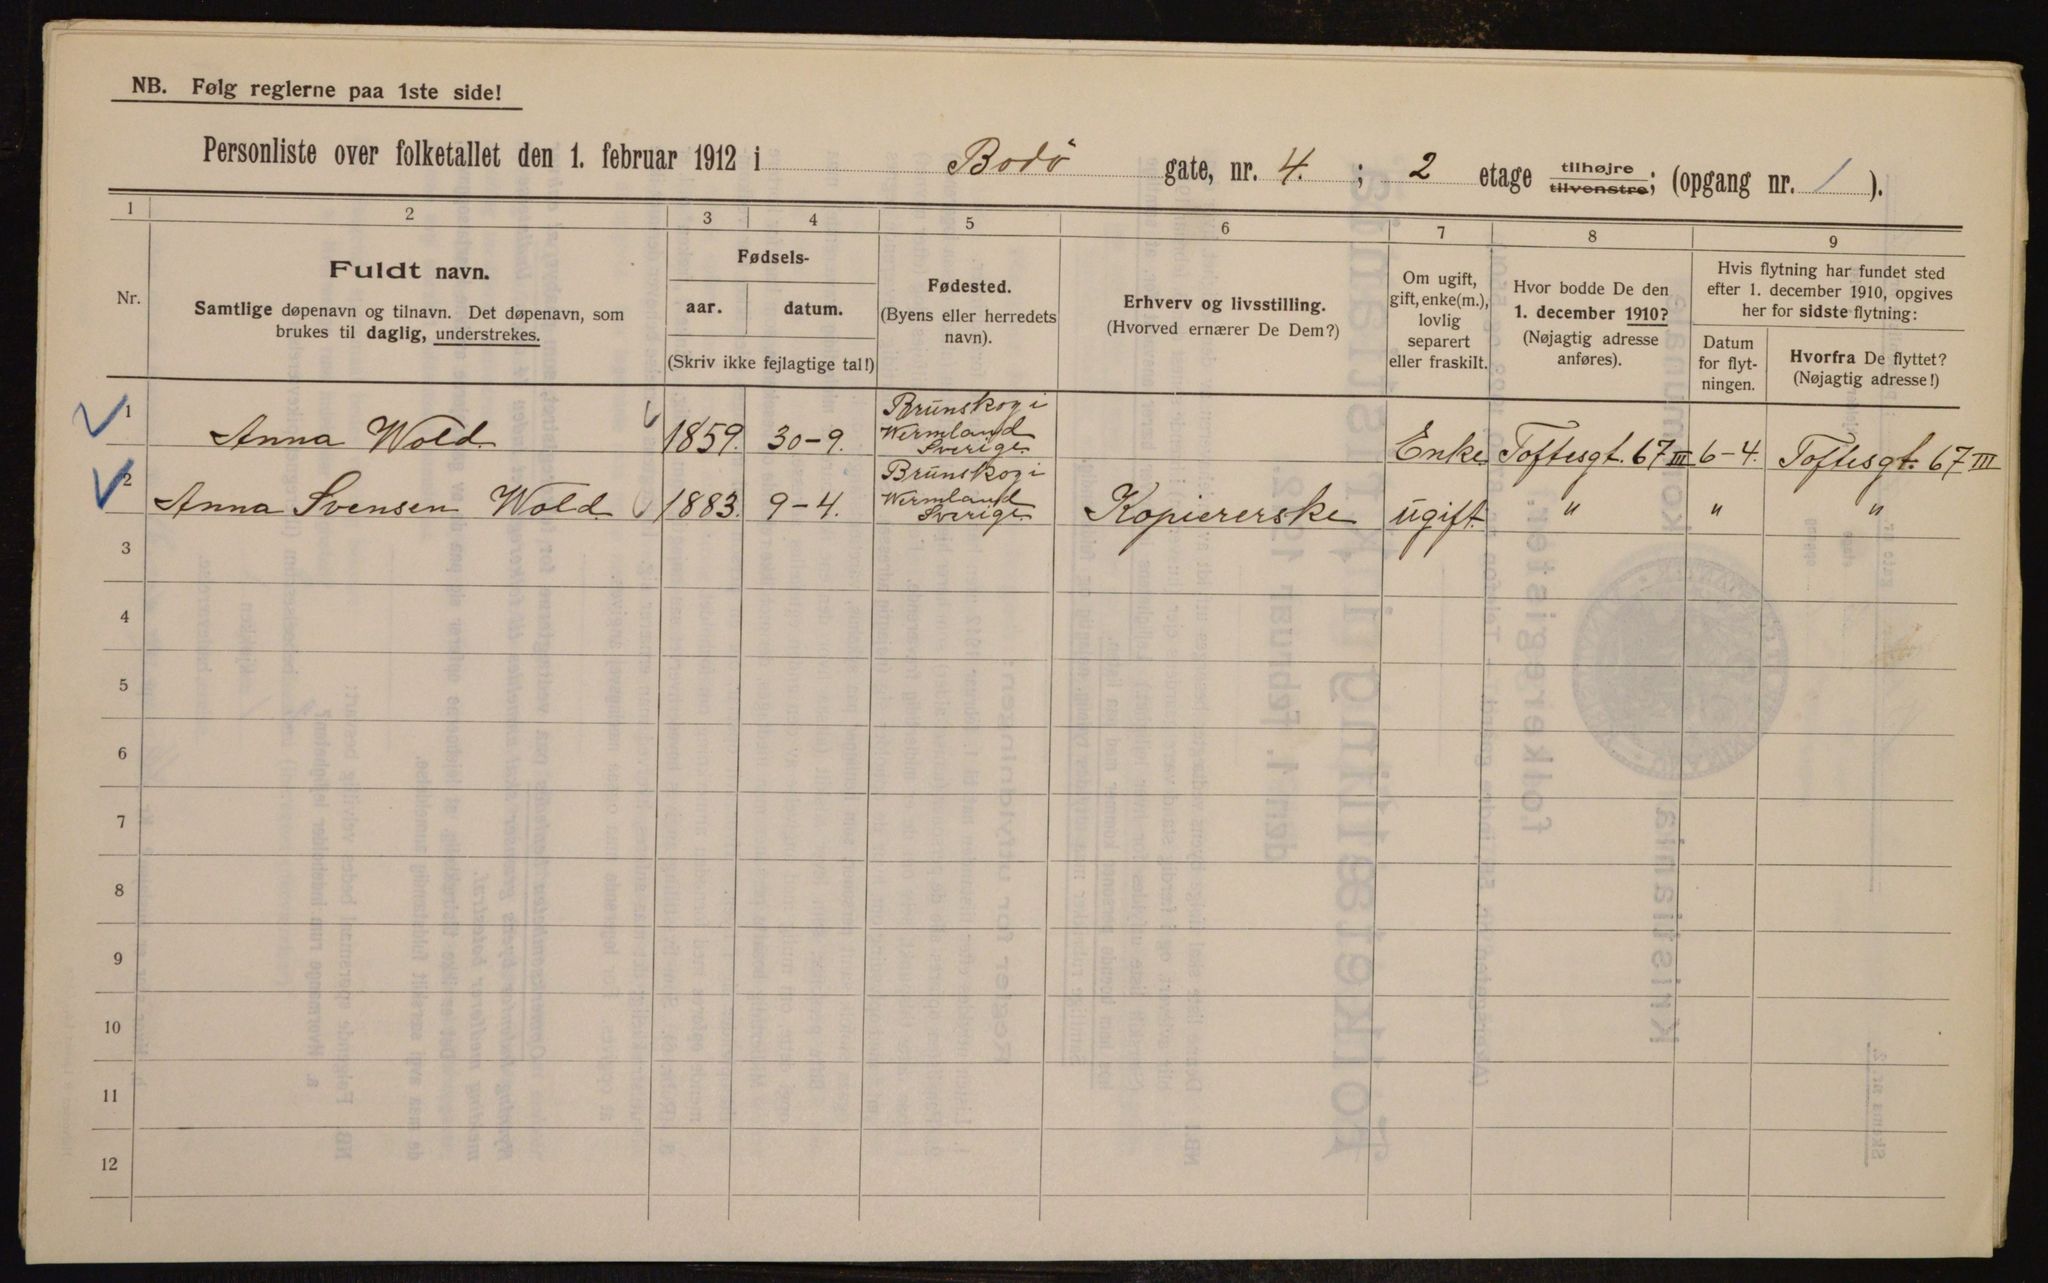 NB. Følg reglerne paa 1ste side!
Personliste over folketallet den 1. februar 1912 i Bodö gate, nr. 4. ; 2 etage tilhøjre tilvenstre; (opgang nr. 1 ).
1 2 3 4 5 6 7 8 9
Nr.
Fuldt navn.
Samtlige døpenavn og tilnavn. Det døpenavn, som
brukes til daglig, understrekes.
Fødsels-
aar. datum.
(Skriv ikke fejlagtige tal!)
Fødested.
(Byens eller herredets
navn).
Erhverv og livsstilling.
(Hvorved ernærer De Dem?)
Om ugift,
gift, enke(m.),
lovlig
separert
eller fraskilt.
Hvor bodde De den
1. december 1910?
(Nøjagtig adresse
anføres).
Hvis flytning har fundet sted
efter 1. december 1910, opgives
her for sidste flytning:
Datum
for flyt-
ningen.
Hvorfra De flyttet?
(Nøjagtig adresse!)
1 Anna Wold. 1859. 30-9. Brunskog i
Wermland
Sverige. Enke. Toftesgt. 67 III 6-4. Toftesgt. 67 III
2 Anna Svensen Wold. 1883. 9-4. Brunskog i
Wermland
Sverige. Kopiererske ugift. " " "
3
4
5
6
7
8
9
10
11
12